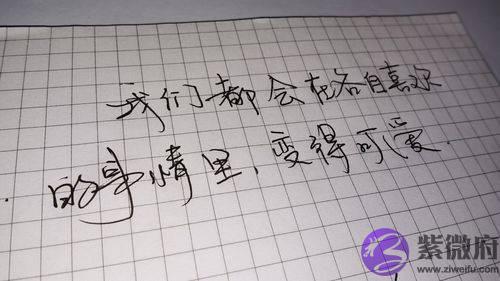 我们都会在各自喜欢
的事情里，变得可爱.
紫微府
www.ziweifu.com